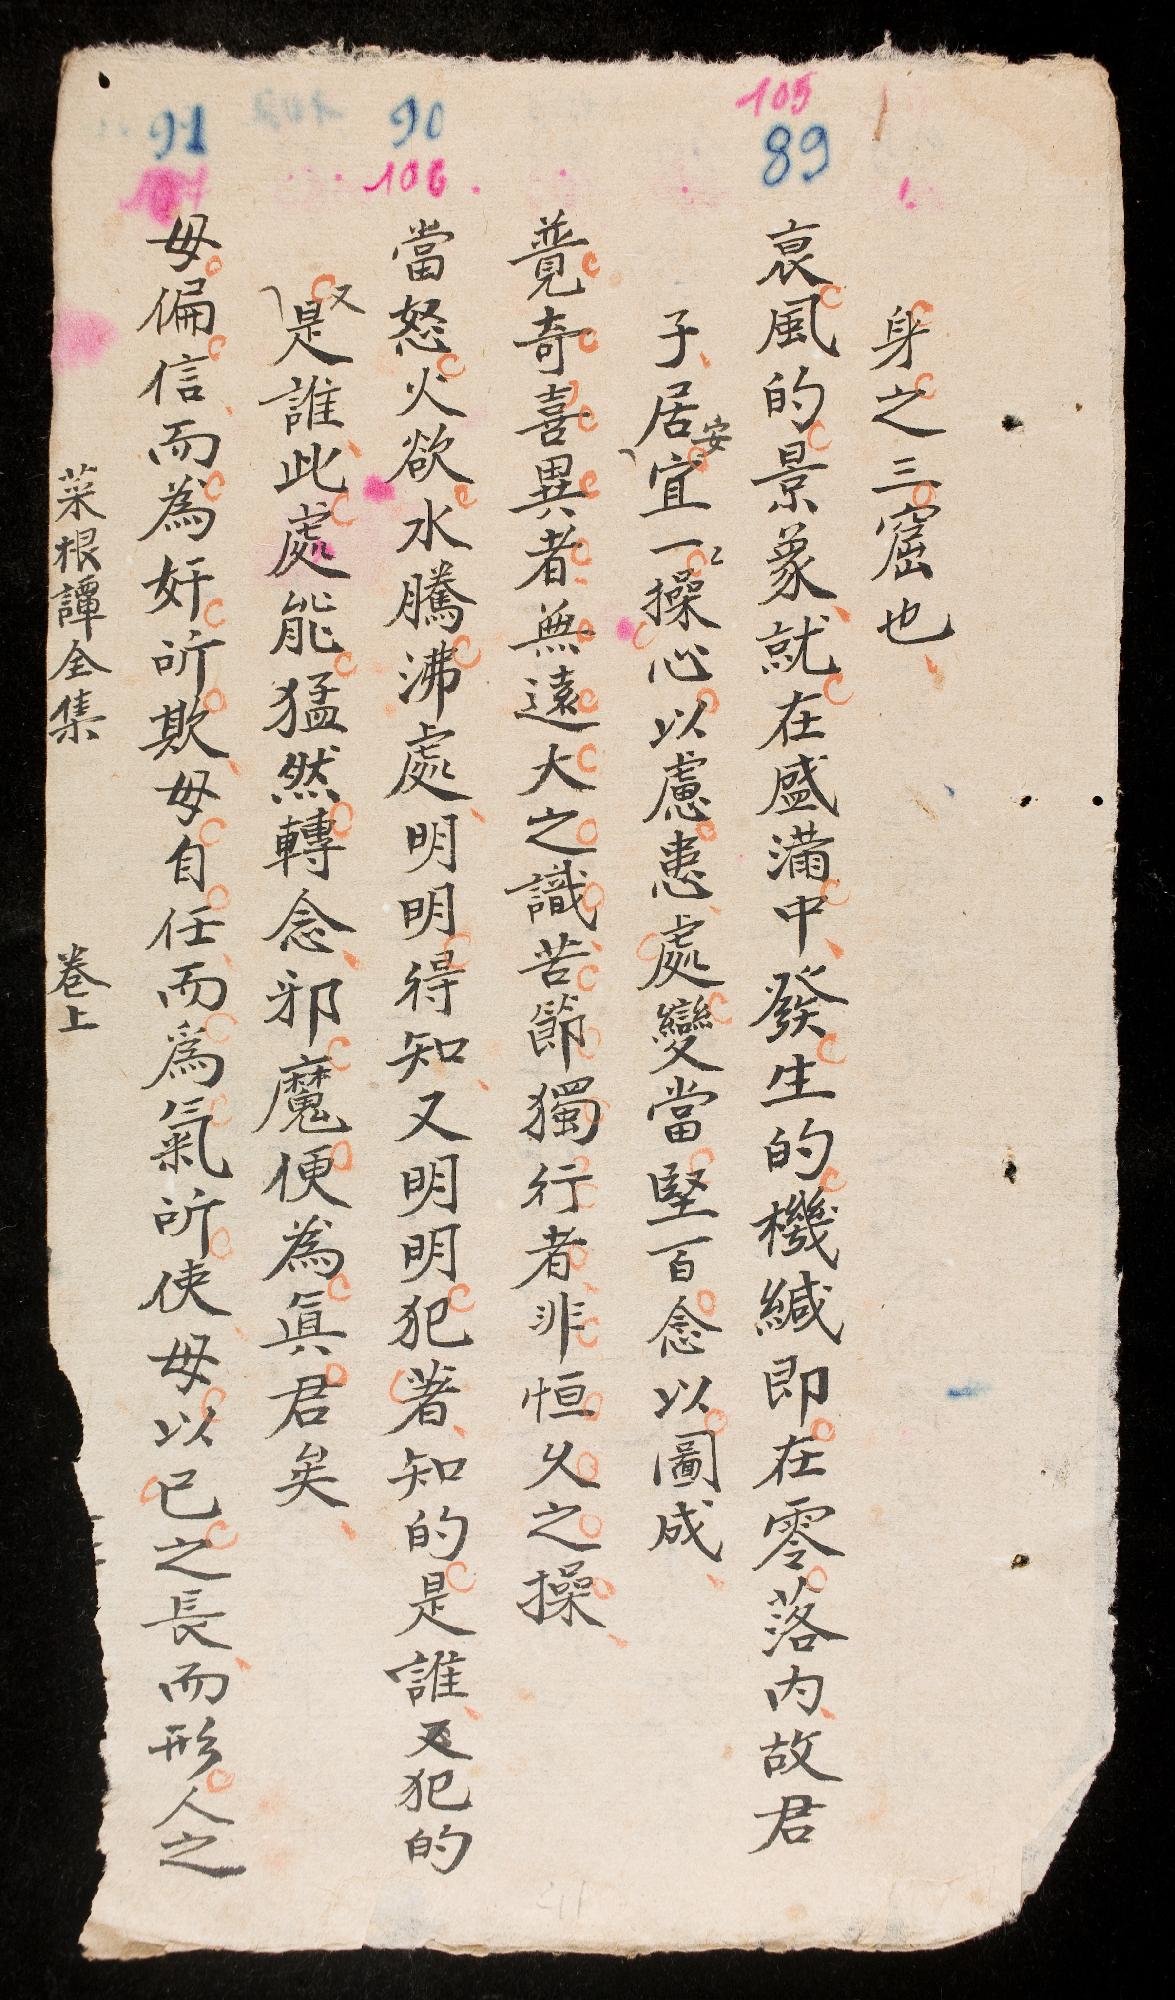 105
89
90
106
91
身之三窟也
哀風的景象就在盛滿中發生的機緘即在零落内故君
子居宜一操心以慮患處變當堅百念以圖成
安
覓奇喜異者無遠大之識苦節獨行者非恒久之操
當怒火欲水騰沸處明明得知又明明犯著知的是誰又犯的
又
是誰此處能猛然轉念邪魔便為眞君矣
毋偏信而為奸所欺毋自任而爲氣所使毋以已之長而形人之
菜根譚全集 卷上